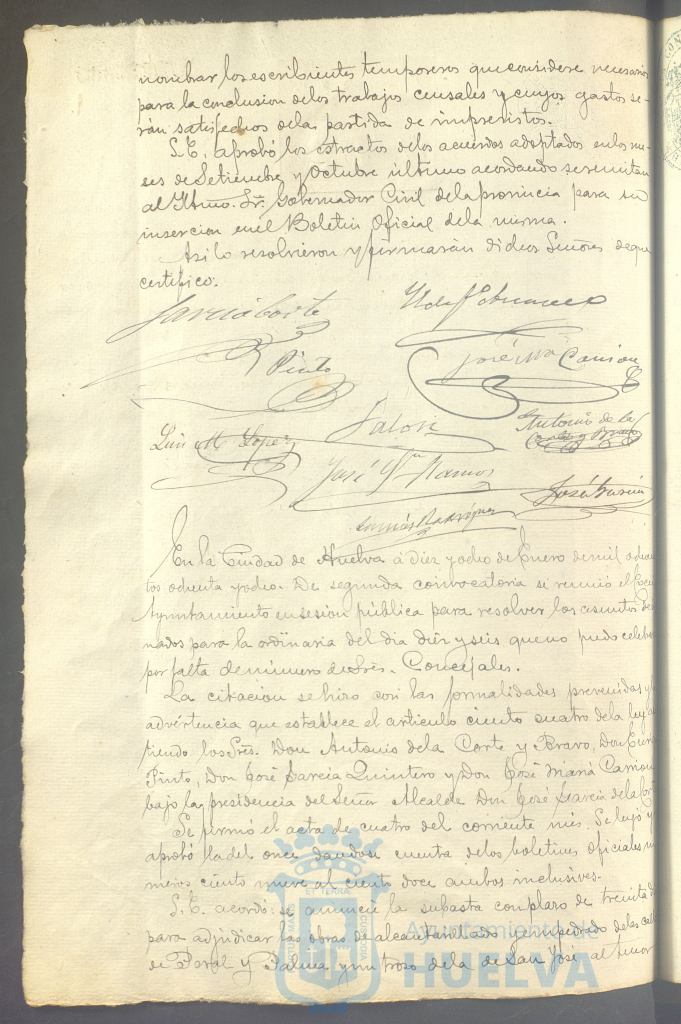 nombrar los escribientes temporeros que considere necesarios
para la conclusion delos trabajos censales y cuyos gastos se-
rán satisfechos dela partida de imprevistos.
S.E. aprobó los estractos delos acuerdos adoptados enlos me-
ses de Setiembre y Octubre último acordando se remitan
al Iltmo. Sr. Gobernador Civil dela provincia para su
insercion enel Boletin Oficial dela misma.
Asi lo resolvieron y firmarán dichos Señores deque
certifico.
García Corte
Pinto
José Mª Carrion
Luis M. Lopez
Antonio de la
Corte y Bravo
José Mª Ramos
José García
Rodriguez
En la Ciudad de Huelva á diez y ocho de Enero de mil ochocien
tos ochenta y ocho. De segunda convocatoria se reunió el Exce
Ayuntamiento en sesion pública para resolver los asuntos de
nados para la ordinaria del dia diez y seis que no pudo celebra
por falta de número de Sres. Concejales.
La citacion se hizo con las formalidades prevenidas y
advertencia que establece el articulo ciento cuatro dela ley
tiendo los Sres. Don Antonio dela Corte y Bravo, Don
Pinto, Don José García Quintero y Don José María Carrion
bajo la presidencia del Señor Alcalde Don José García dela Cor
Se firmó el acta de cuatro del corriente mes. Se leyó y
aprobó la del once dandose cuenta delos boletines oficiales nú
meros ciento nueve al ciento doce ambos inclusives.
S.E. acordó: se anuncie la subasta con plazo de treinta d
para adjudicar las obras de alcantarillado y empedrado de las call
de Peral y Palma y un trozo dela de San José al tenor
Ayuntamiento de
HUELVA